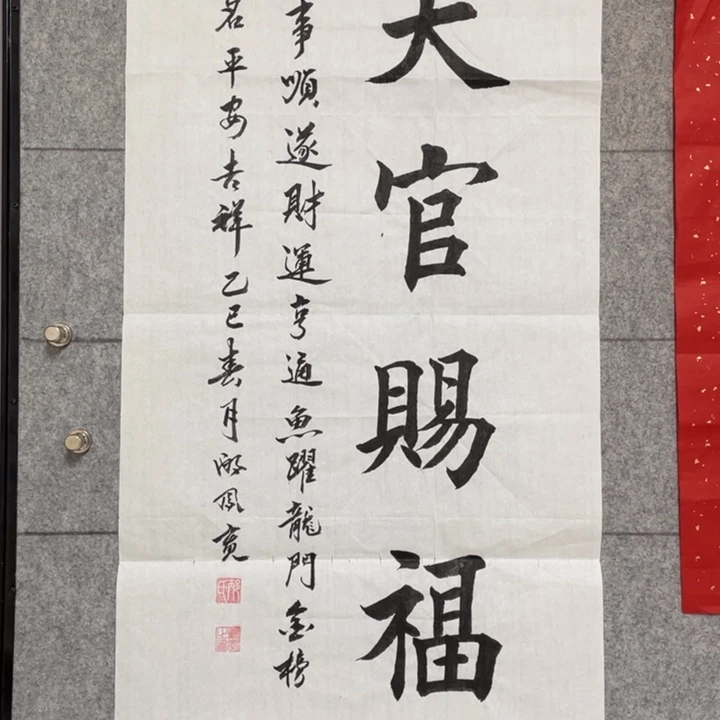 天官賜福
事順遂財運亨通魚躍龍門金榜
名平安吉祥乙巳春月